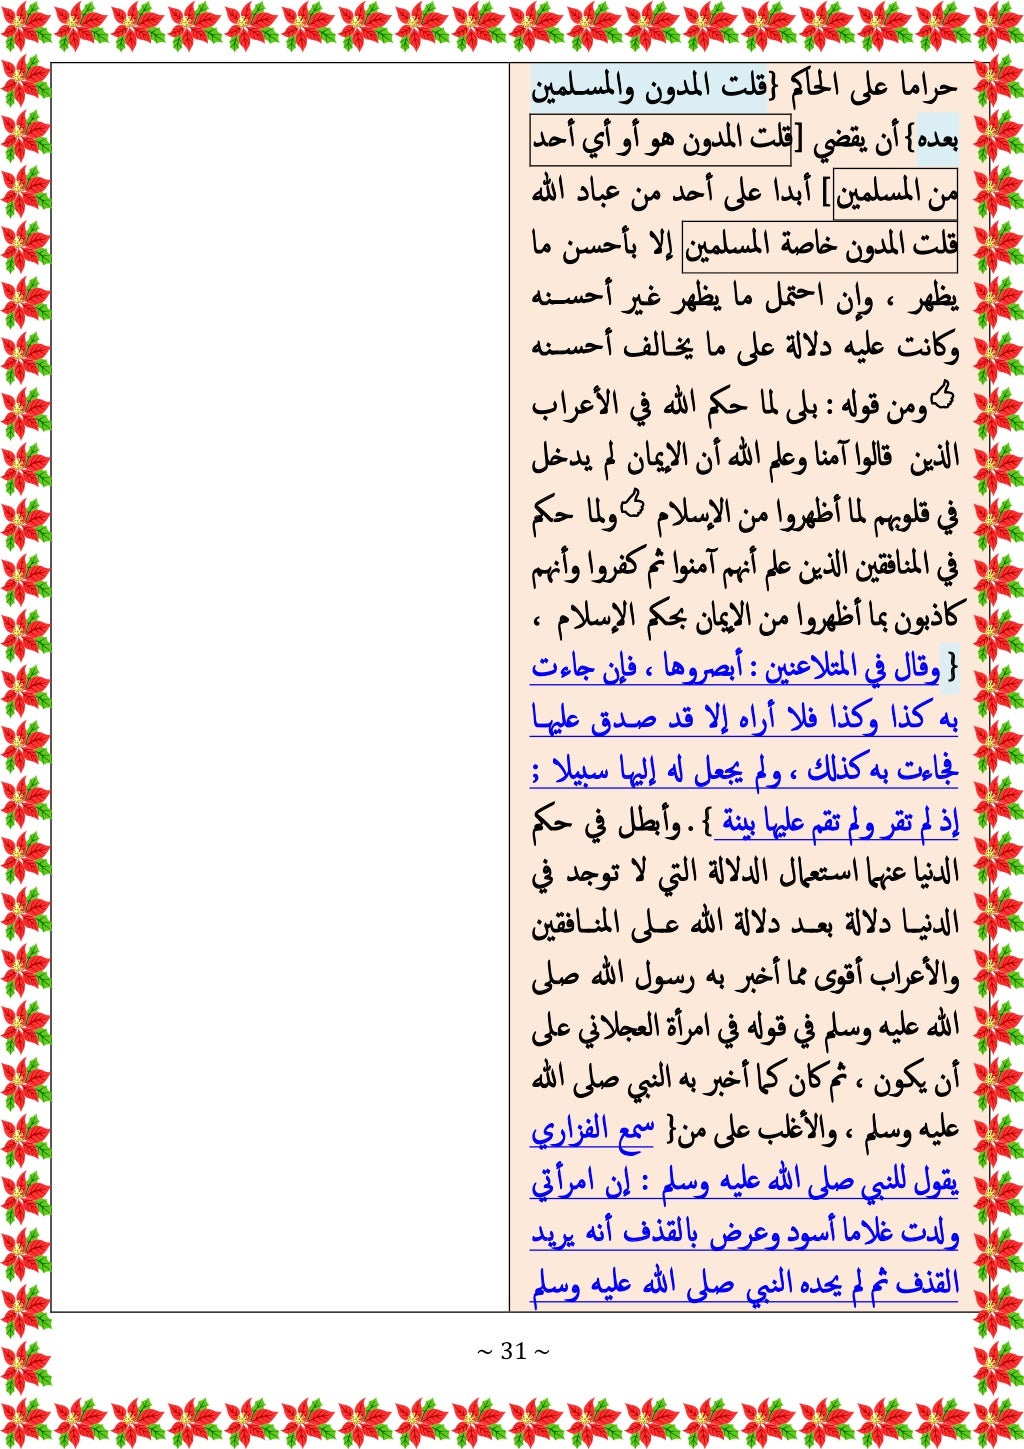 حراما على الحاكم {قلت المدون والمسلمين
بعده} أن يقضي [قلت المدون هو أو أي أحد
من المسلمين] أبدا على أحد من عباد الله
قلت المدون خاصة المسلمين إلا بأحسن ما
يظهر ، وإن احتمل ما يظهر غير أحسنه
وكانت عليه دلالة على ما يخالف أحسنه
👍ومن قوله : بلى لما حكم الله في الأعراب
الذين قالوا آمنا وعلم الله أن الإيمان لم يدخل
في قلوبهم لما أظهروا من الإسلام 👍ولما حكم
في المنافقين الذين علم أنهم آمنوا ثم كفروا وأنهم
كاذبون بما أظهروا من الإيمان بحكم الإسلام ،
{ وقال في المتلاعنين : أبصروها ، فإن جاءت
به كذا وكذا فلا أراه إلا قد صدق عليها
فجاءت به كذلك ، ولم يجعل له إليها سبيلا ;
إذ لم تقر ولم تقم عليها بينة } . وأبطل في حكم
الدنيا عنهما استعمال الدلالة التي لا توجد في
الدنيا دلالة بعد دلالة الله على المنافقين
والأعراب أقوى مما أخبر به رسول الله صلى
الله عليه وسلم في قوله في امرأة العجلاني على
أن يكون ، ثم كان كما أخبر به النبي صلى الله
عليه وسلم ، والأغلب على من{ سمع الفزاري
يقول للنبي صلى الله عليه وسلم : إن امرأتي
ولدت غلاما أسود وعرض بالقذف أنه يريد
القذف ثم لم يحده النبي صلى الله عليه وسلم
~ 31 ~